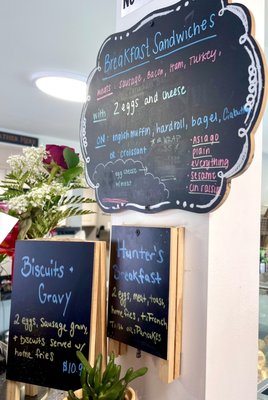 NO
Breakfast Sandwiches
meats: sausage, Bacon, Ham, Turkey,
with 2 eggs and cheese
ON: english muffin, hardroll, bagel, Ciabatta
or croissant
* Asiago
plain
everything
sesame
cin raisin
egg + cheese
Biscuits +
Gravy
2 eggs, Sausage gravy,
+ biscuits served w/
home fries
$10.
Hunter's
Breakfast
2 eggs, meat, toast,
home fries, + French
Toast or Pancakes